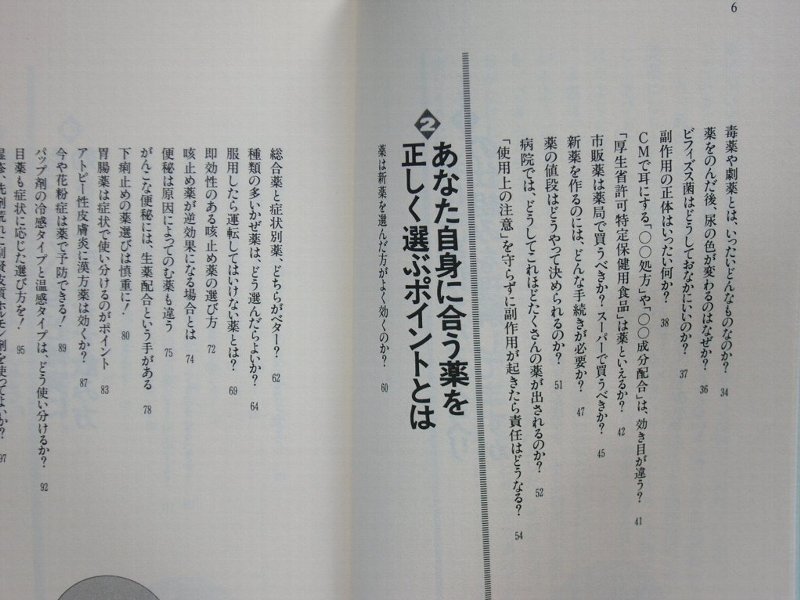 6
毒薬や劇薬とは、いったいどんなものなのか? 34
薬をのんだ後、尿の色が変わるのはなぜか? 36
ビフィズス菌はどうしておなかにいいのか? 37
副作用の正体はいったい何か? 38
CMで耳にする「〇〇処方」や「〇〇成分配合」は、効き目が違う? 41
「厚生省許可特定保健用食品」は薬といえるか? 42
市販薬は薬局で買うべきか? スーパーで買うべきか? 45
新薬を作るのには、どんな手続きが必要か? 47
薬の値段はどうやって決められるのか? 51
病院では、どうしてこれほどたくさんの薬が出されるのか? 52
「使用上の注意」を守らずに副作用が起きたら責任はどうなる? 54
2 あなた自身に合う薬を
正しく選ぶポイントとは
薬は新薬を選んだ方がよく効くのか? 60
総合薬と症状別薬、どちらがベター? 62
種類の多いかぜ薬は、どう選んだらよいか? 64
服用したら運転してはいけない薬とは? 69
即効性のある咳止め薬の選び方 72
咳止め薬が逆効果になる場合とは 74
便秘は原因によってのむ薬も違う 75
がんこな便秘には、生薬配合という手がある 78
下痢止めの薬選びは慎重に! 80
胃腸薬は症状で使い分けるのがポイント 83
アトピー性皮膚炎に漢方薬は効くか? 87
今や花粉症は薬で予防できる! 89
パップ剤の冷感タイプと温感タイプは、どう使い分けるか? 92
目薬も症状に応じた選び方を! 95
97